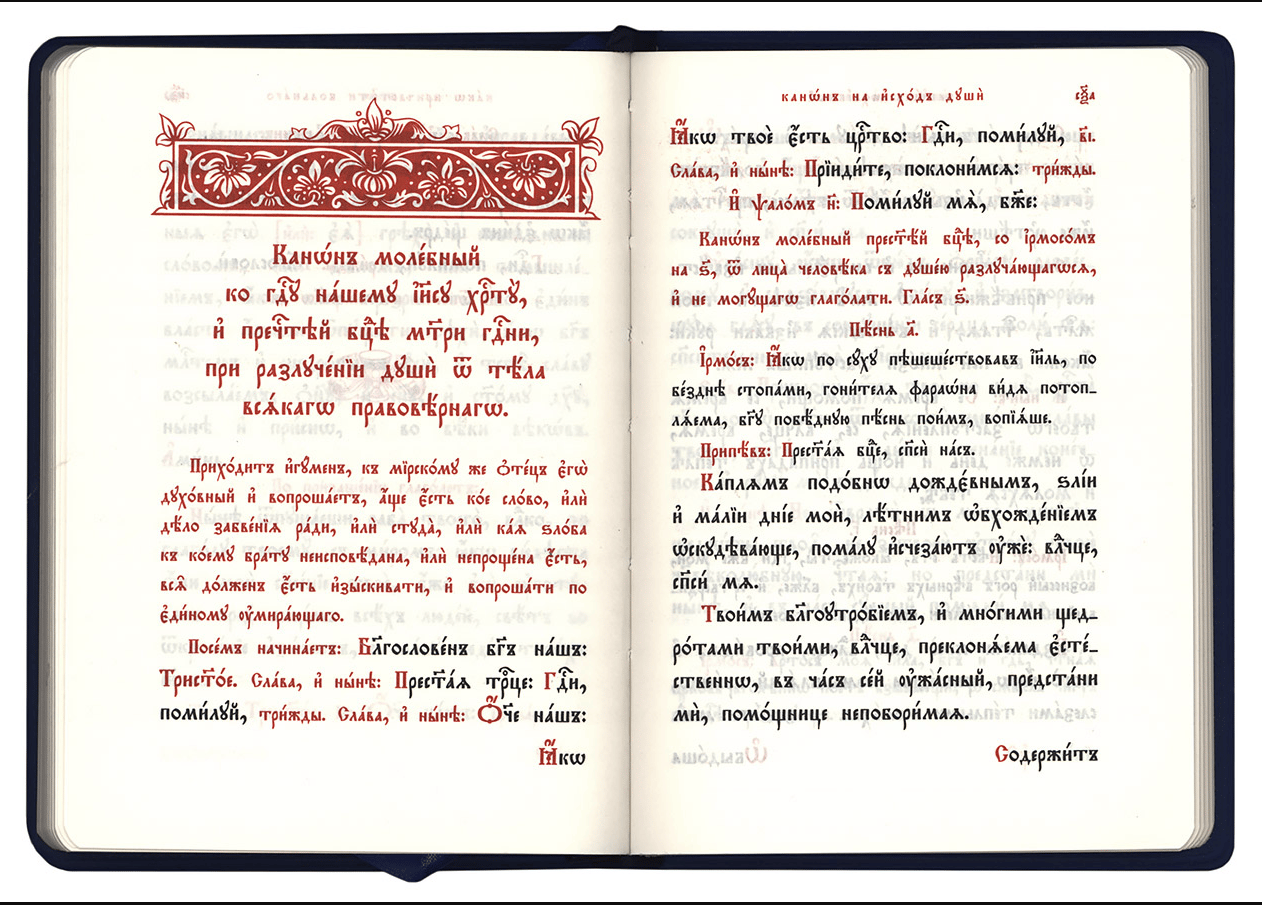 Канѡ́нъ моле́бный
ко гдⷭ҇у на́шему і҆и҃су хрⷭ҇ту̀,
и҆ пречⷭ҇тѣй бцⷣѣ мт҃ри гдⷭ҇ни,
при разлꙋче́нїи дꙋшѝ ѿ тѣ́ла
всѧ́кагѡ правовѣ́рнагѡ.
Прихо́дитъ и҆гꙋ́менъ, къ мїрско́мꙋ же ѻ҆те́цъ є҆гѡ̀
дꙋхо́вный и҆ вопроша́етъ, а҆́ще є҆́сть ко́е сло́во, и҆лѝ
дѣ́ло забве́нїѧ ра́ди, и҆лѝ стꙋда̀, и҆лѝ ка́ѧ ѕло́ба
къ ко́емꙋ бра́тꙋ неисповѣ́дана, и҆лѝ непроще́на є҆́сть,
всѧ̑ до́лженъ є҆́сть и҆зы́скивати, и҆ вопроша́ти по
є҆ди́номꙋ ᲂу҆мира́ющаго.
Посе́мъ начина́етъ: Блгⷭ҇ослове́нъ бг҃ъ на́шъ:
Трист҃о́е. Сла́ва, и҆ ны́нѣ: Прест҃а́ѧ трⷪ҇це: Гдⷭ҇и,
поми́лꙋй, три́жды. Сла́ва, и҆ ны́нѣ: Ѻ҆́ч҃е на́шъ:
Ꙗ҆́кѡ
канѡ́нъ на и҆схо́дъ дꙋшѝ
Ꙗ҆́кѡ твоѐ є҆́сть црⷭ҇тво: Гдⷭ҇и, поми́лꙋй, в҃і.
Сла́ва, и҆ ны́нѣ: Прїиди́те, поклони́мсѧ: три́жды.
И҆ ѱало́мъ н҃: Поми́лꙋй мѧ̀, бж҃е:
Канѡ́нъ моле́бный прест҃ѣ́й бцⷣѣ, со і҆рмосо́мъ
на ѕ҃, ѿ лица̀ человѣ́ка съ дꙋше́ю разлꙋча́ющагѡсѧ,
и҆ не могꙋ́щагѡ глаго́лати. Гла́съ ѕ҃.
Пѣ́снь а҃.
І҆рмо́съ: Ꙗ҆́кѡ по сꙋ́хꙋ пѣшеше́ствовавъ і҆и҃ль, по
бе́зднѣ стопа́ми, гони́телѧ фараѡ́на ви́дѧ потоп-
лѧ́ема, бг҃ꙋ побѣ́днꙋю пѣ́снь пои́мъ, вопїѧ́ше.
Припѣ́въ: Прест҃а́ѧ бцⷣе, сп҃сѝ на́съ.
Ка́плѧмъ подо́бнѡ дожде́внымъ, ѕлі́и
и҆ ма́лїи дні́е моѝ, лѣ́тнимъ ѡ҆бхожде́нїемъ
ѡ҆скꙋдѣва́юще, пома́лꙋ и҆счеза́ютъ ᲂу҆жѐ: влⷣчце,
сп҃сѝ мѧ̀.
Твои́мъ бл҃гоꙋтро́бїемъ, и҆ мно́гими щед-
ро́тами твои́ми, влⷣчце, преклонѧ́ема є҆сте́-
ственнѡ, въ ча́съ се́й ᲂу҆жа́сный, предста́ни
мѝ, помо́щнице непобори́маѧ.
Содержи́тъ